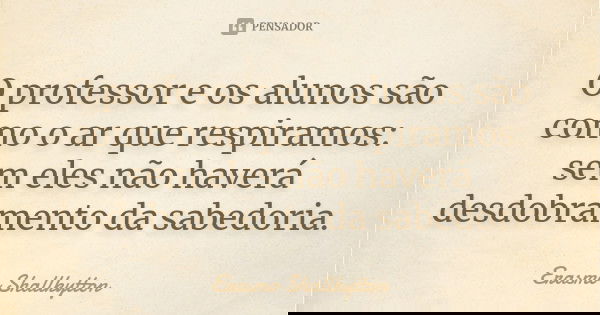 PENSADOR
O professor e os alunos são
como o ar que respiramos:
sem eles não haverá
desdobramento da sabedoria.
Erasmo Shallkytton